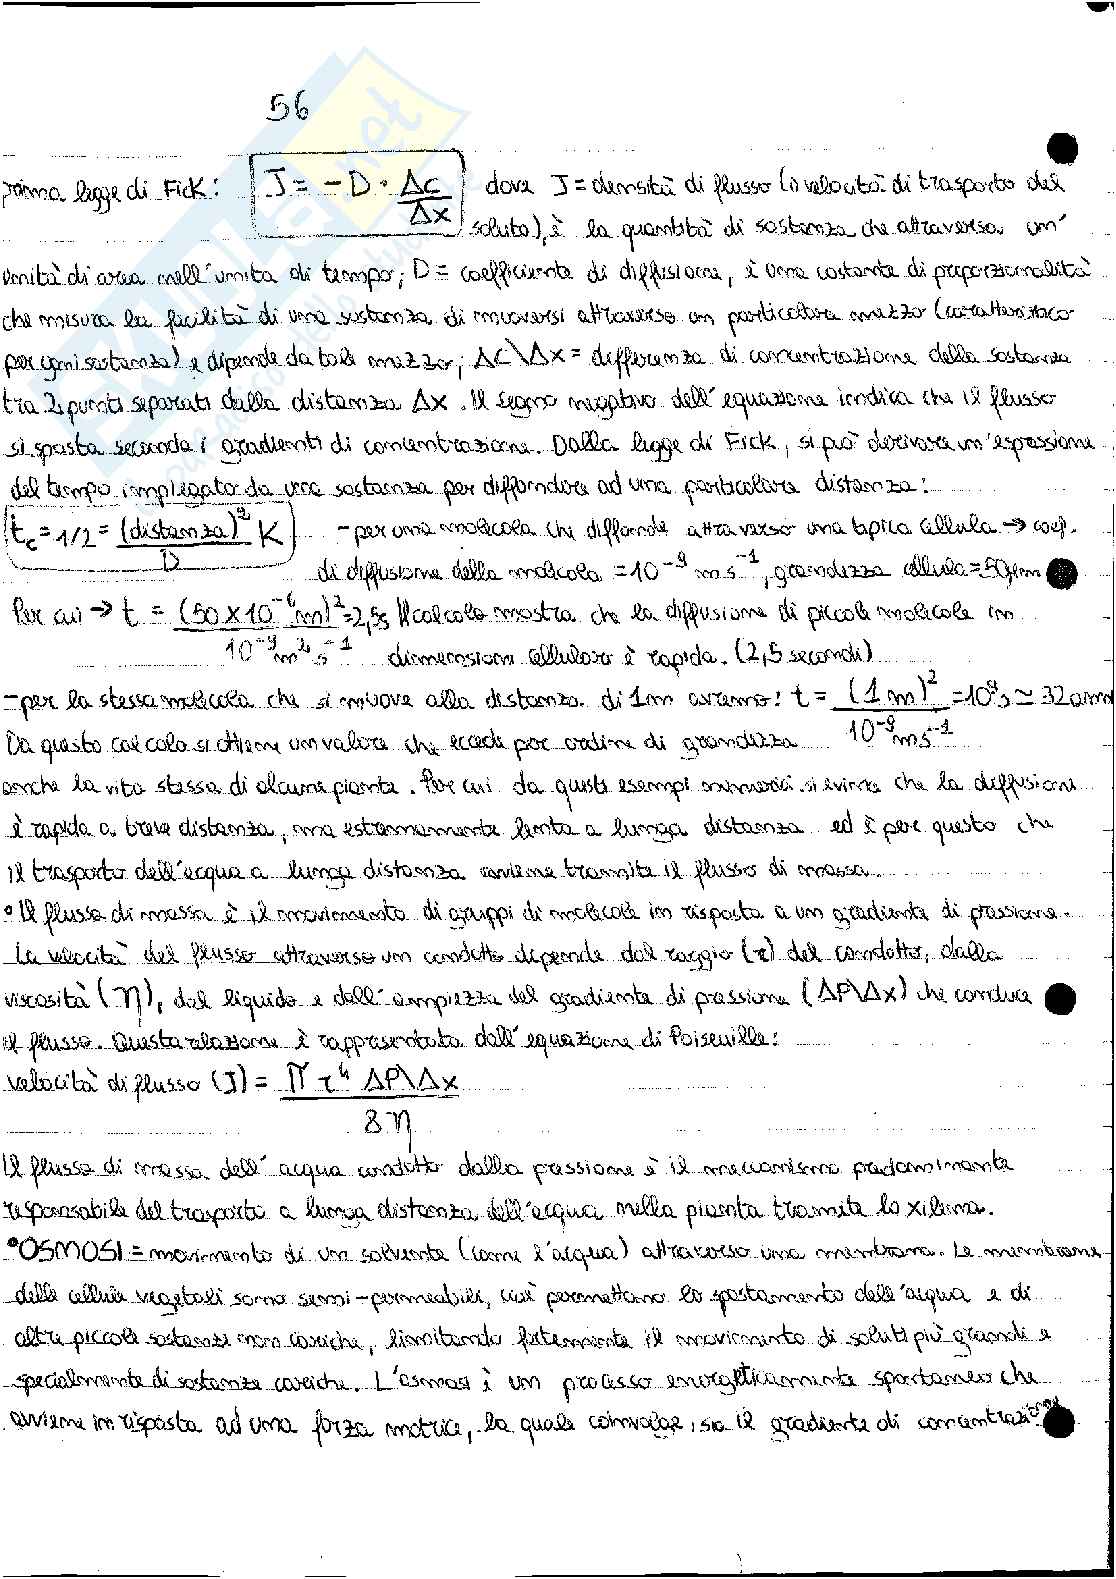 56
prima legge di Fick: J = -D · Δc/Δx dove J = densità di flusso (o velocità di trasporto del
soluto), è la quantità di sostanza che attraversa un'
unità di area nell'unità di tempo; D = coefficiente di diffusione, è una costante di proporzionalità
che misura la facilità di una sostanza di muoversi attraverso un particolare mezzo (caratteristico
per ogni sostanza) e dipende da tale mezzo; Δc\Δx = differenza di concentrazione della sostanza
tra 2 punti separati dalla distanza Δx. Il segno negativo dell'equazione indica che il flusso
si sposta secondo i gradienti di concentrazione. Dalla legge di Fick, si può derivare un'espressione
del tempo impiegato da una sostanza per diffondere ad una particolare distanza:
t_c = 1/2 = (distanza)²/D K - per una molecola che diffonde attraverso una tipica cellula → coef.
di diffusione della molecola = 10⁻⁹ m s⁻¹, grandezza cellula = 50 μm
Per cui → t = (50 x 10⁻⁶ m)²/10⁻⁹ m² s⁻¹ = 2,5s Il calcolo mostra che la diffusione di piccole molecole in
dimensioni cellulare è rapida. (2,5 secondi)
- per la stessa molecola che si muove alla distanza di 1m avremo: t = (1 m)²/10⁻⁹ m s⁻¹ = 10⁹ s ≃ 32 anni
Da questo calcolo si ottiene un valore che eccede per ordine di grandezza
anche la vita stessa di alcune piante. Per cui da questi esempi numerici si evince che la diffusione
è rapida a breve distanza, ma estremamente lenta a lunga distanza ed è per questo che
il trasporto dell'acqua a lunga distanza avviene tramite il flusso di massa.
° Il flusso di massa è il movimento di gruppi di molecole in risposta a un gradiente di pressione.
La velocità del flusso attraverso un condotto dipende dal raggio (r) del condotto, dalla
viscosità (η), dal liquido e dall'ampiezza del gradiente di pressione (ΔP\Δx) che conduce
il flusso. Questa relazione è rappresentata dall'equazione di Poiseuille:
velocità di flusso (J) = π r⁴ ΔP\Δx
8 η
Il flusso di massa dell'acqua condotto dalla pressione è il meccanismo predominante
responsabile del trasporto a lunga distanza dell'acqua nella pianta tramite lo xilema.
° OSMOSI = movimento di un solvente (come l'acqua) attraverso una membrana. Le membrane
delle cellule vegetali sono semi-permeabili, cioè permettono lo spostamento dell'acqua e di
altre piccole sostanze non cariche, limitando fortemente il movimento di soluti più grandi e
specialmente di sostanze cariche. L'osmosi è un processo energeticamente spontaneo che
avviene in risposta ad una forza motrice, la quale coinvolge, sia il gradiente di concentrazione